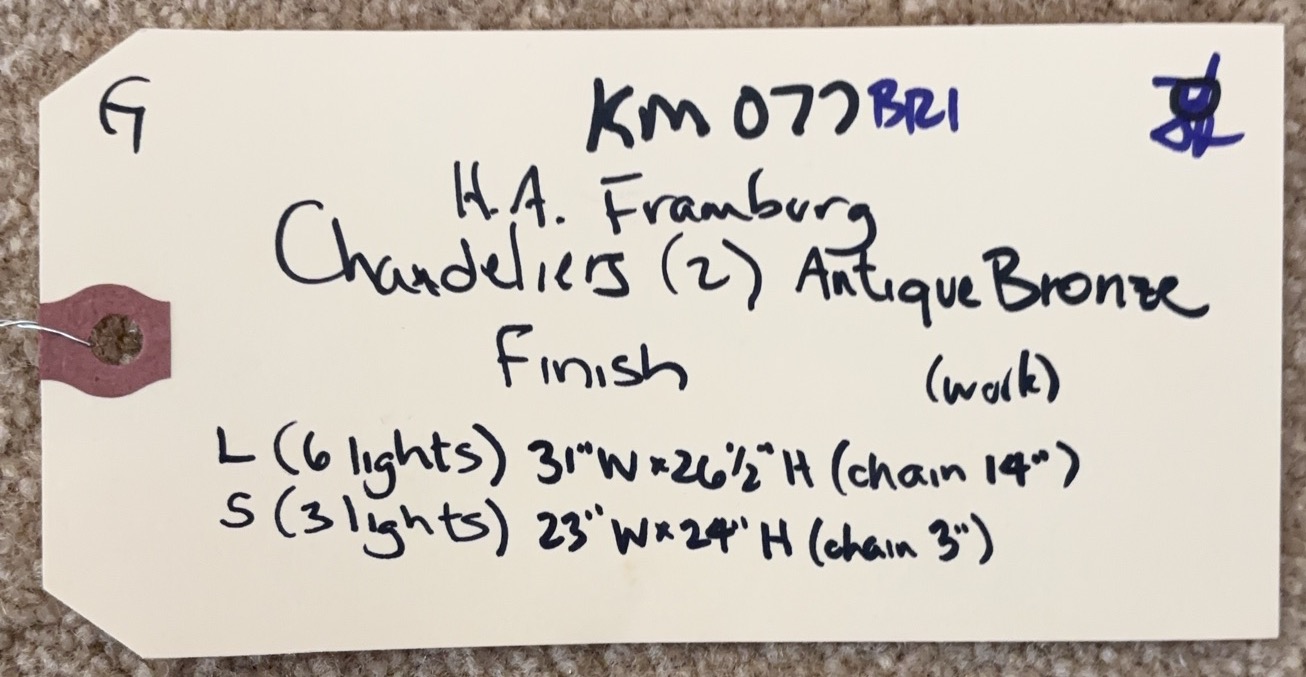 G KM 077 BR1
H.A. Framburg
Chandeliers (2) Antique Bronze
Finish (work)
L (6 lights) 31"W x 26 1/2" H (chain 14")
S (3 lights) 23" W x 24" H (chain 3")